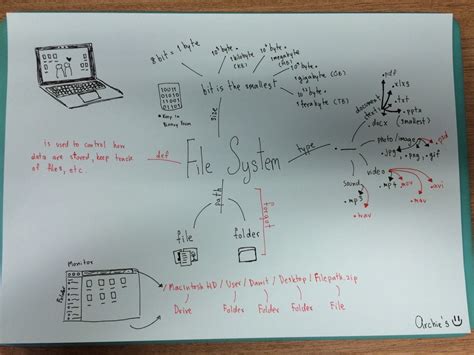 8 bit = 1 byte
10³ byte = 1 kilobyte (KB)
10⁶ byte = 1 megabyte (MB)
10⁹ byte = 1 gigabyte (GB)
10¹² byte = 1 terabyte (TB)
bit is the smallest
size
10011
01010
11001
01011
* Keep in
Binary form
is used to control how
data are stored, keep track
of files, etc.
def
File System
type
document
text
.pdf
.xlxs
.txt
.pptx
.docx (smallest)
photo/image
.jpg
.png
.gif
.psd
video
.mp4
.mov
.avi
.mov
sound
.mp3
.wav
path
forgot
file
folder
Monitor
/ Macintosh HD / User / Dawit / Desktop / Filepath.zip
Drive
Folder
Folder
Folder
File
archie's